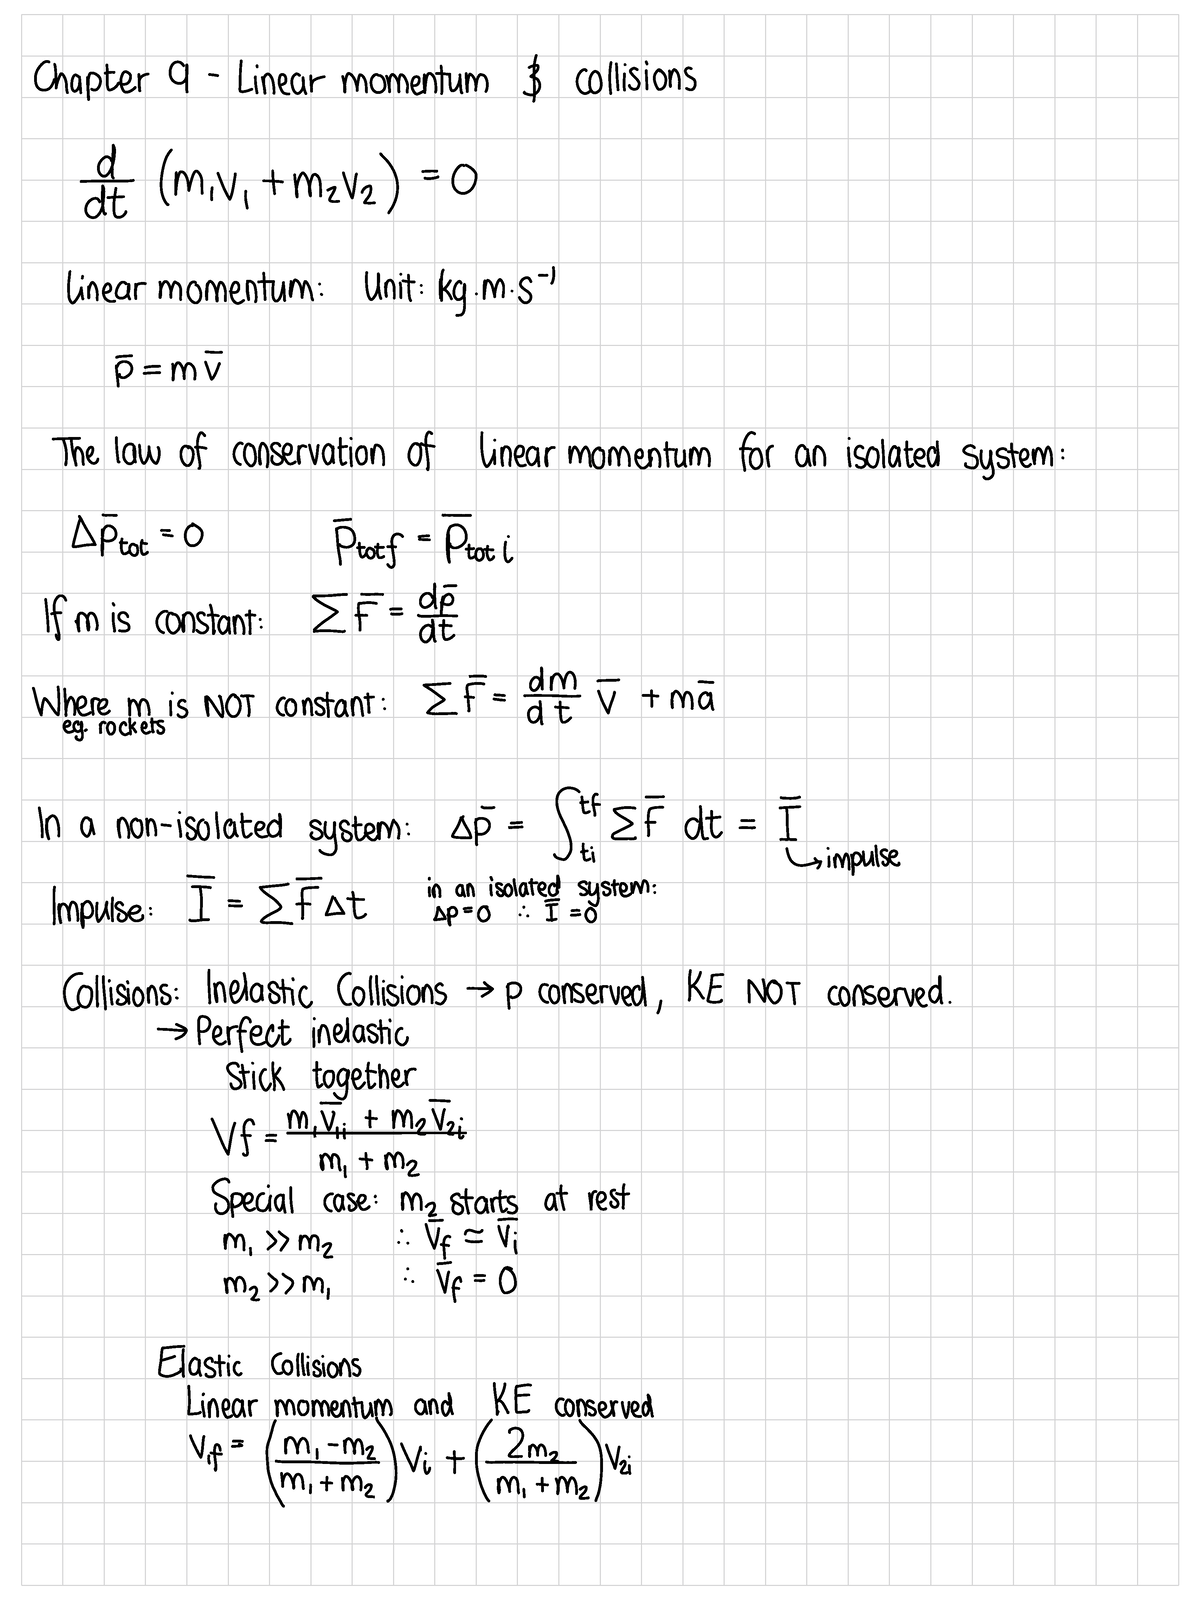 Chapter 9 - Linear momentum & collisions
d/dt (m₁v₁ + m₂v₂) = 0
Linear momentum: Unit: kg·m·s⁻¹
p̄ = m v̄
The law of conservation of linear momentum for an isolated system:
Δp̄tot = 0 p̄totf = p̄toti
If m is constant: ΣF̄ = dp̄/dt
Where m is NOT constant: ΣF̄ = dm/dt v̄ + mā
eg. rockets
In a non-isolated system: Δp̄ = ∫ti^tf ΣF̄ dt = Ī
↳ impulse
Impulse: Ī = ΣF̄Δt in an isolated system:
Δp=0 ∴ Ī =0
Collisions: Inelastic Collisions → p conserved, KE NOT conserved.
→ Perfect inelastic
Stick together
Vf = (m₁v̄₁i + m₂v̄₂i)/(m₁ + m₂)
Special case: m₂ starts at rest
m₁ >> m₂ ∴ v̄f ≃ v̄i
m₂ >> m₁ ∴ v̄f = 0
Elastic Collisions
Linear momentum and KE conserved
V₁f = ((m₁-m₂)/(m₁+m₂)) Vi + (2m₂/(m₁+m₂)) V₂i